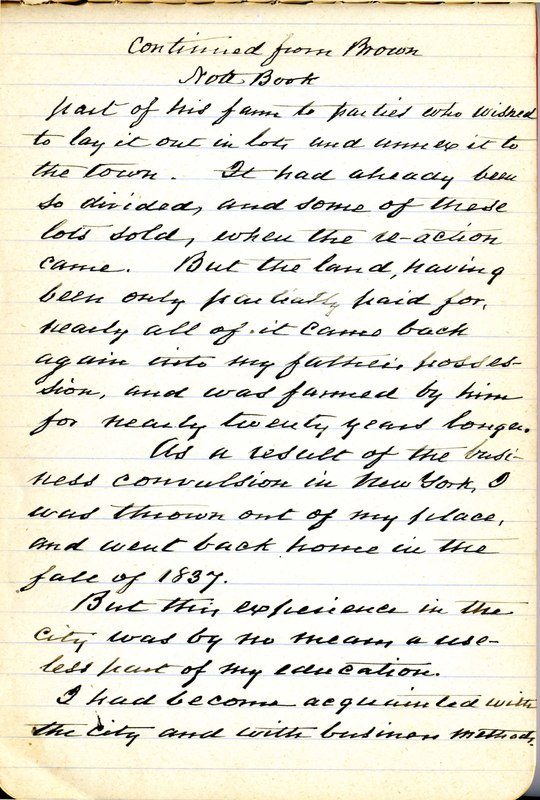 Continued from Brown
Note Book
part of his farm to parties who wished
to lay it out in lots and annex it to
the town. It had already been
so divided, and some of these
lots sold, when the re-action
came. But the land, having
been only partially paid for,
nearly all of it came back
again into my father's posses-
sion, and was farmed by him
for nearly twenty years longer.
As a result of the busi-
ness convulsion in New York, I
was thrown out of my place,
and went back home in the
fall of 1837.
But this experience in the
city was by no means a use-
less part of my education.
I had become acquainted with
the city and with business methods,